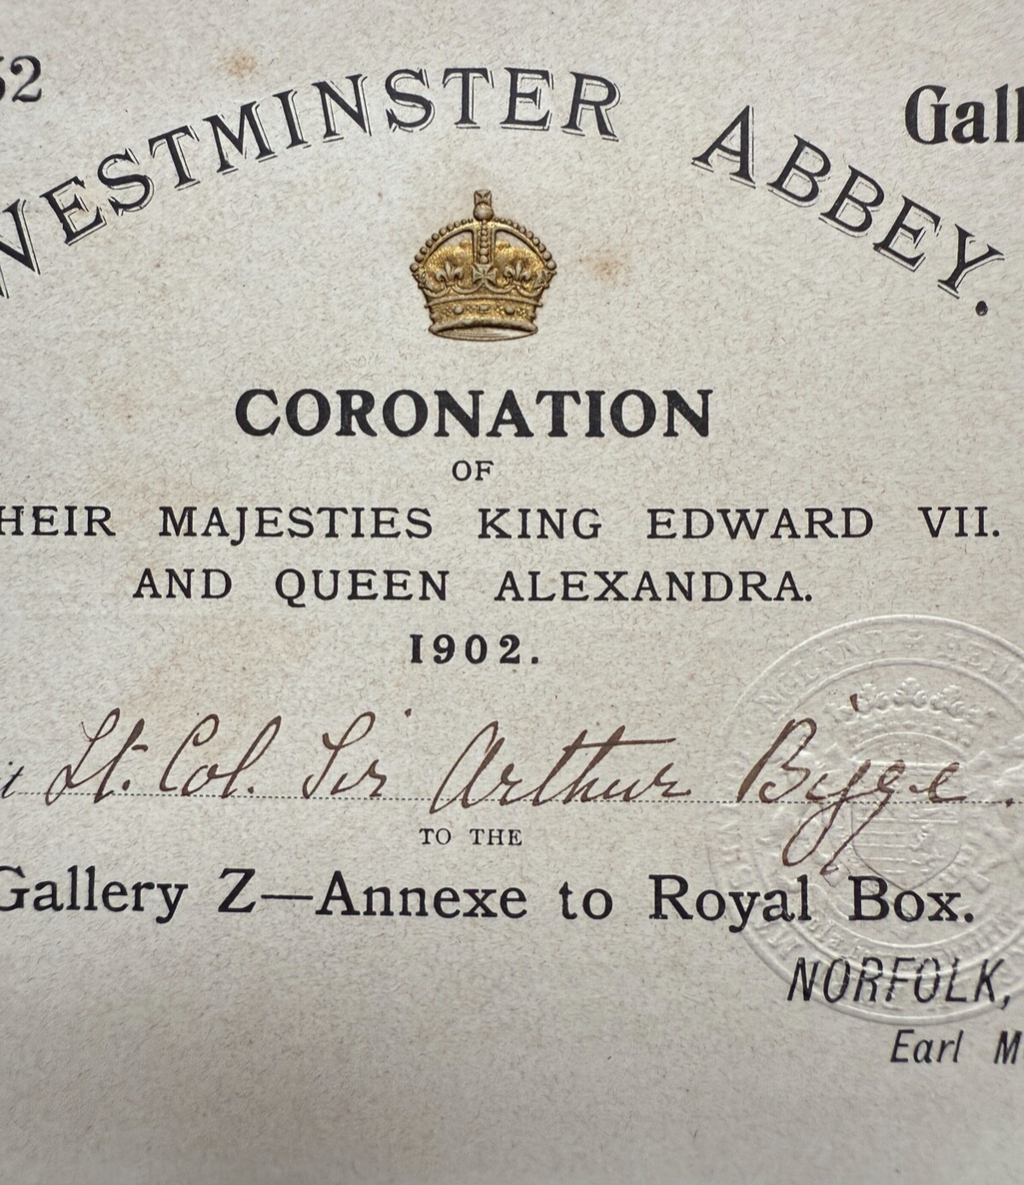 52
Gall
WESTMINSTER ABBEY.
CORONATION
OF
HEIR MAJESTIES KING EDWARD VII.
AND QUEEN ALEXANDRA.
1902.
Lt. Col. Sir Arthur Bigge.
TO THE
Gallery Z—Annexe to Royal Box.
NORFOLK,
Earl M